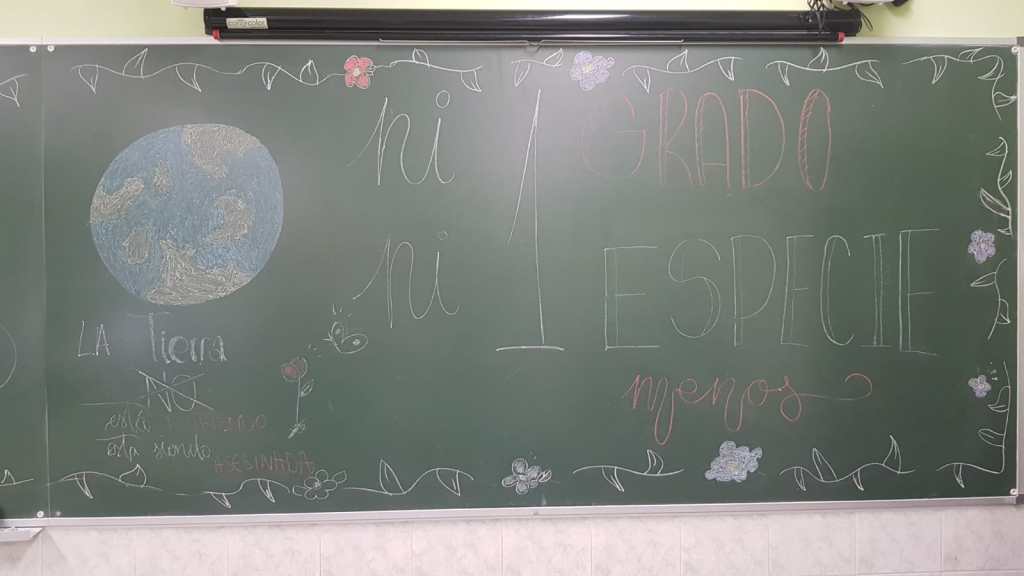 ni 1 GRADO
ni ESPECIE
menos
LA Tierra
NO
está
está siendo
ASESINADA